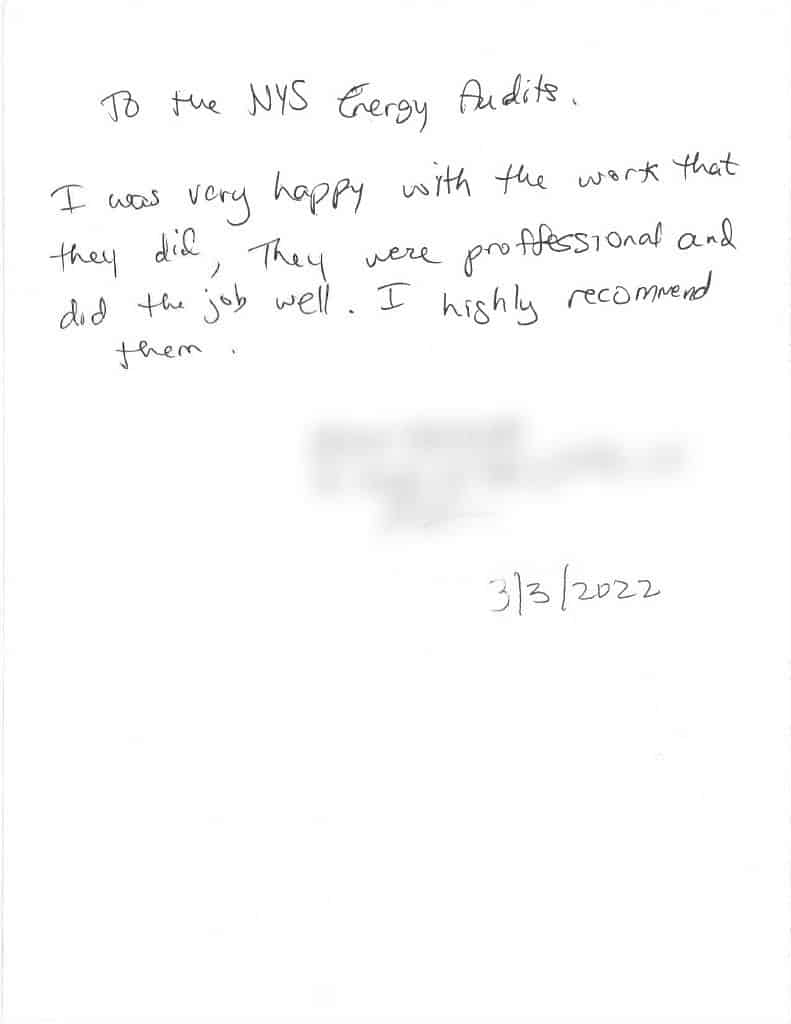 To the NYS Energy Audits.
I was very happy with the work that
they did, They were proffessional and
did the job well. I highly recommend
them.
3/3/2022